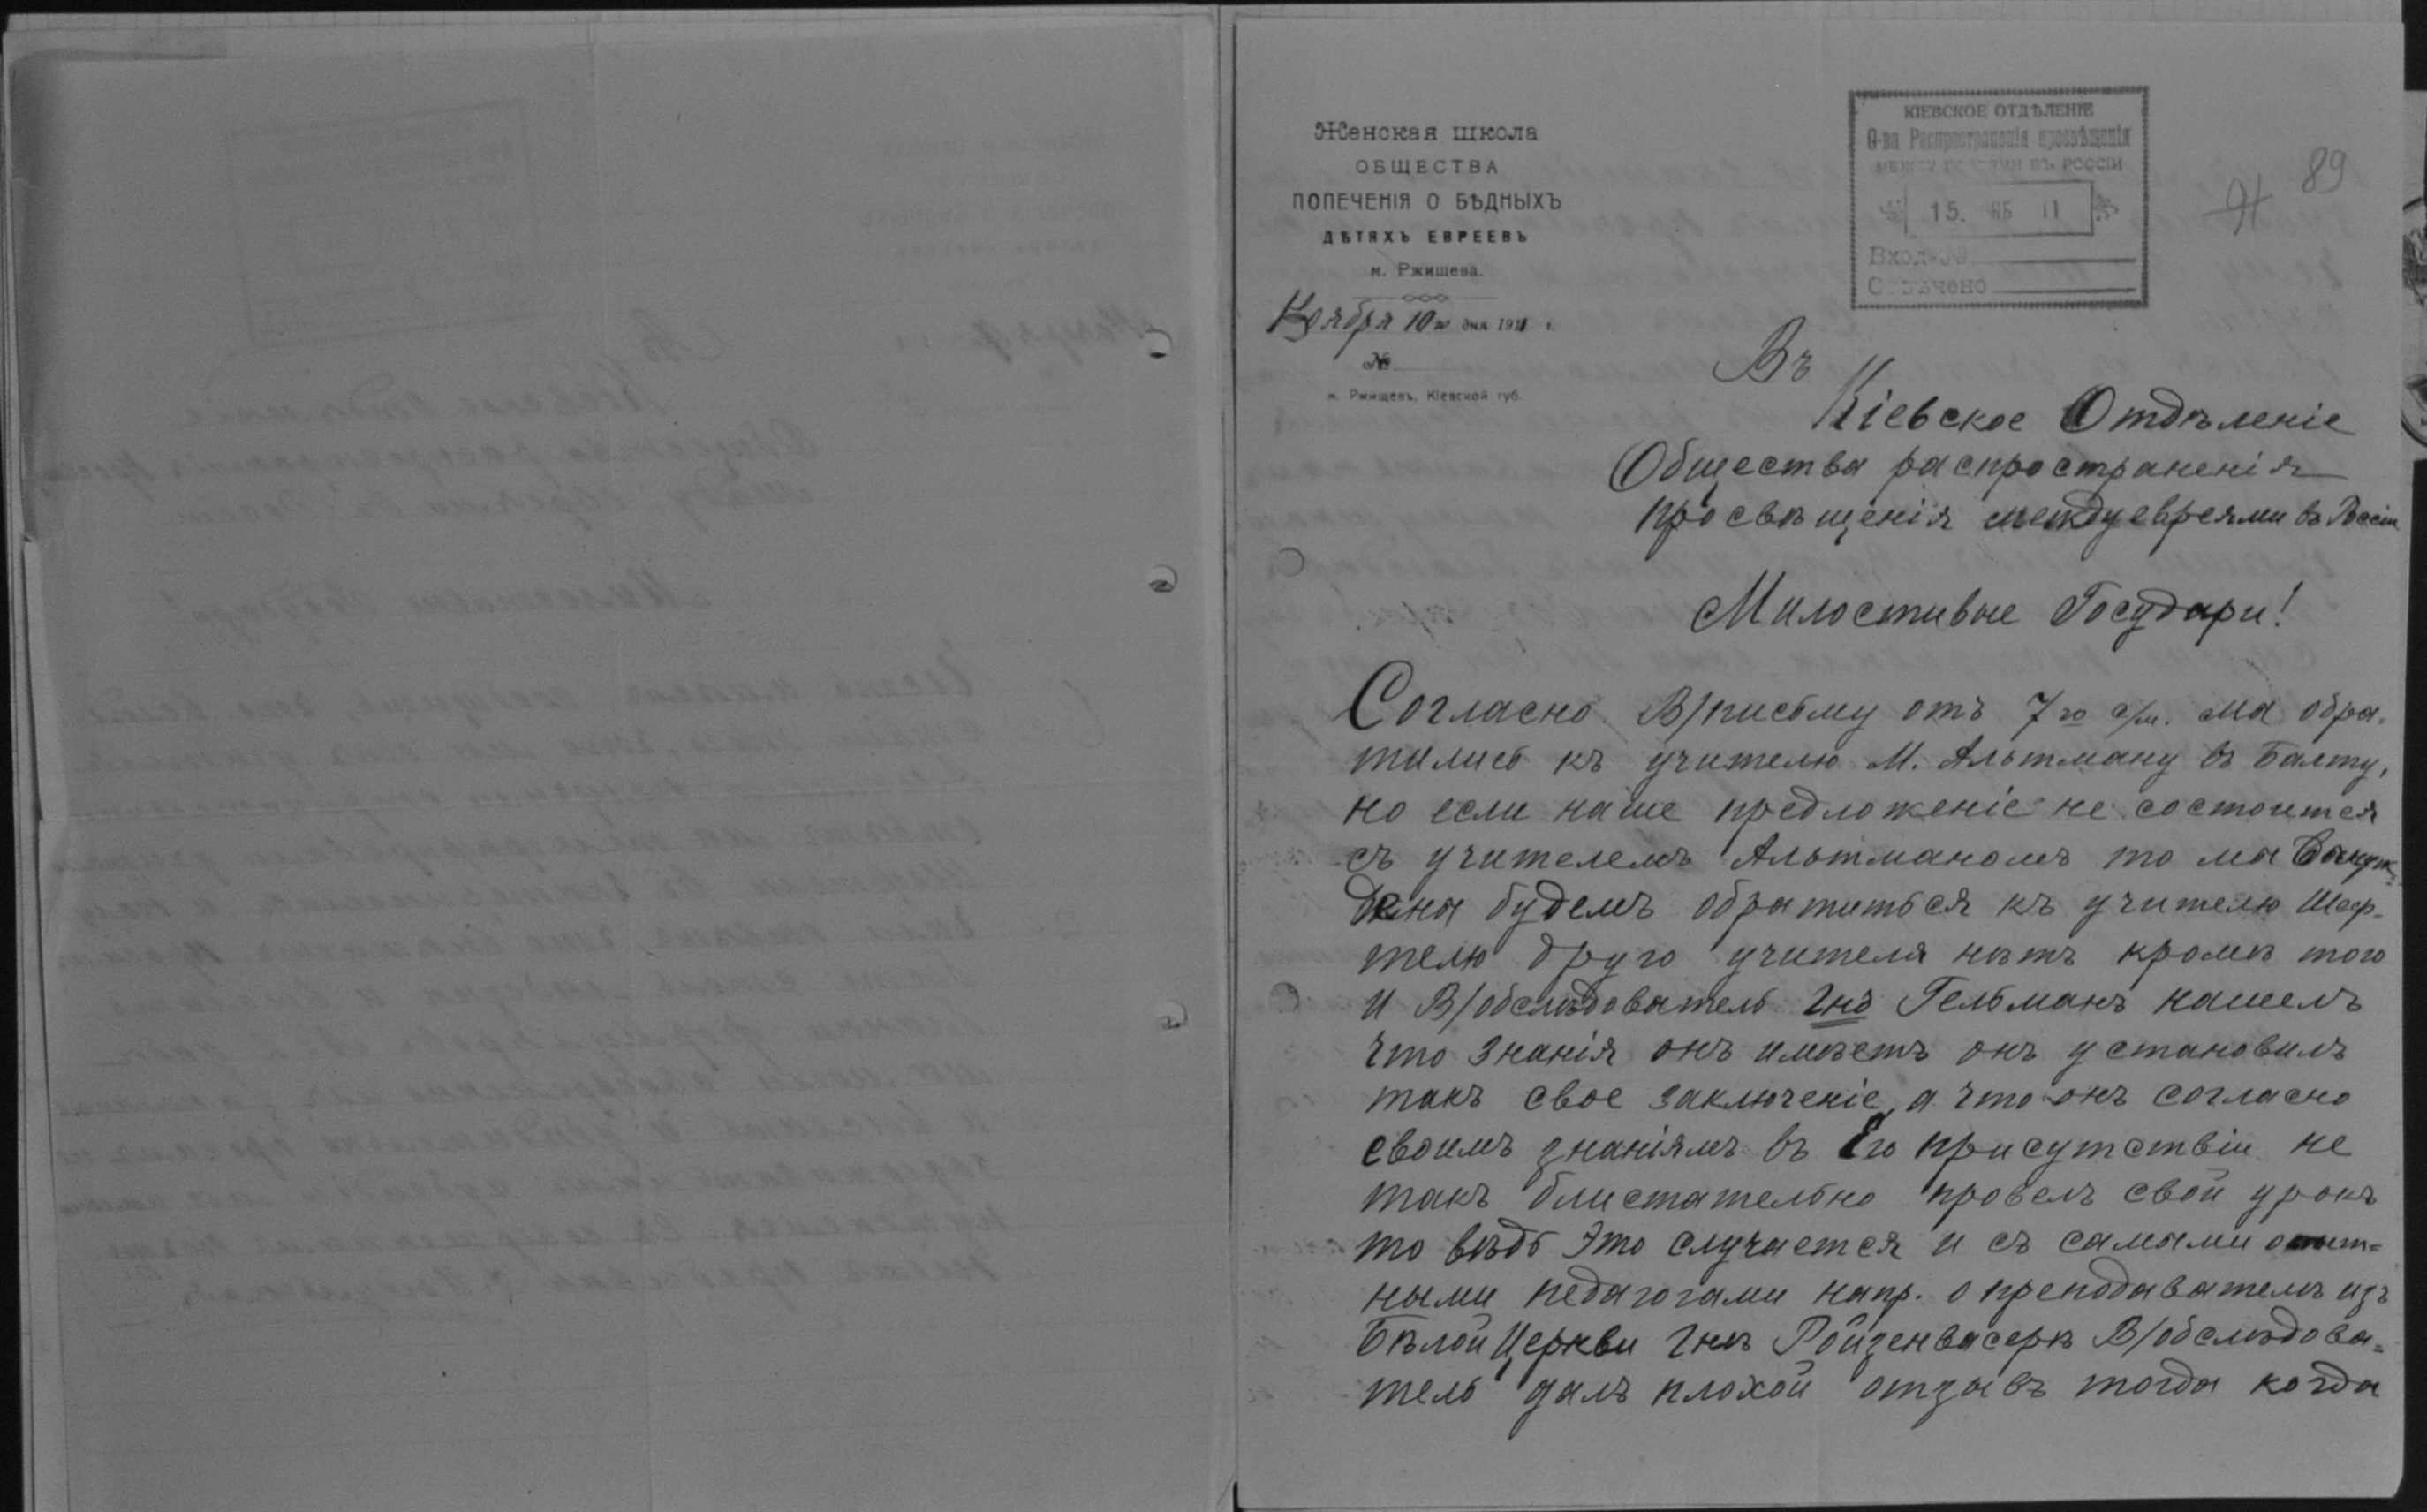 Женская школа
ОБЩЕСТВА
ПОПЕЧЕНІЯ О БѢДНЫХЪ
ДѢТЯХЪ ЕВРЕЕВЪ
м. Ржищева.
Ноября 10го дня 1911 г.
№
м. Ржищевъ, Кіевской губ.
КІЕВСКОЕ ОТДѢЛЕНІЕ
О-ва Распространенія просвѣщенія
МЕЖДУ ЕВРЕЯМИ ВЪ РОССІИ
15. НЯБ 11
Вход. №
Отвѣчено
91 89
Въ
Кіевское Отдѣленіе
Общества распространенія
просвѣщенія между евреями въ Россіи
Милостивые Государи!
Согласно В/письму отъ 7го с/м. мы обра-
тились къ учителю М. Альтману въ Балту,
но если наше предложеніе не состоится
съ учителемъ Альтманомъ то мы вынуж-
дены будемъ обратиться къ учителю Шеф-
телю друго учителя нѣтъ кромѣ того
и В/обслѣдователь Гнъ Гельманъ нашелъ
что знанія онъ имѣетъ онъ установилъ
такъ свое заключеніе, а что онъ согласно
своимъ знаніямъ въ Его присутствіи не
такъ блистательно провелъ свой урокъ
то вѣдь это случается и съ самыми опыт=
ными педагогами напр. о преподавателѣ изъ
Бѣлой Церкви Гнѣ Ройзенвасерѣ В/обслѣдова=
тель далъ плохой отзывъ тогда когда